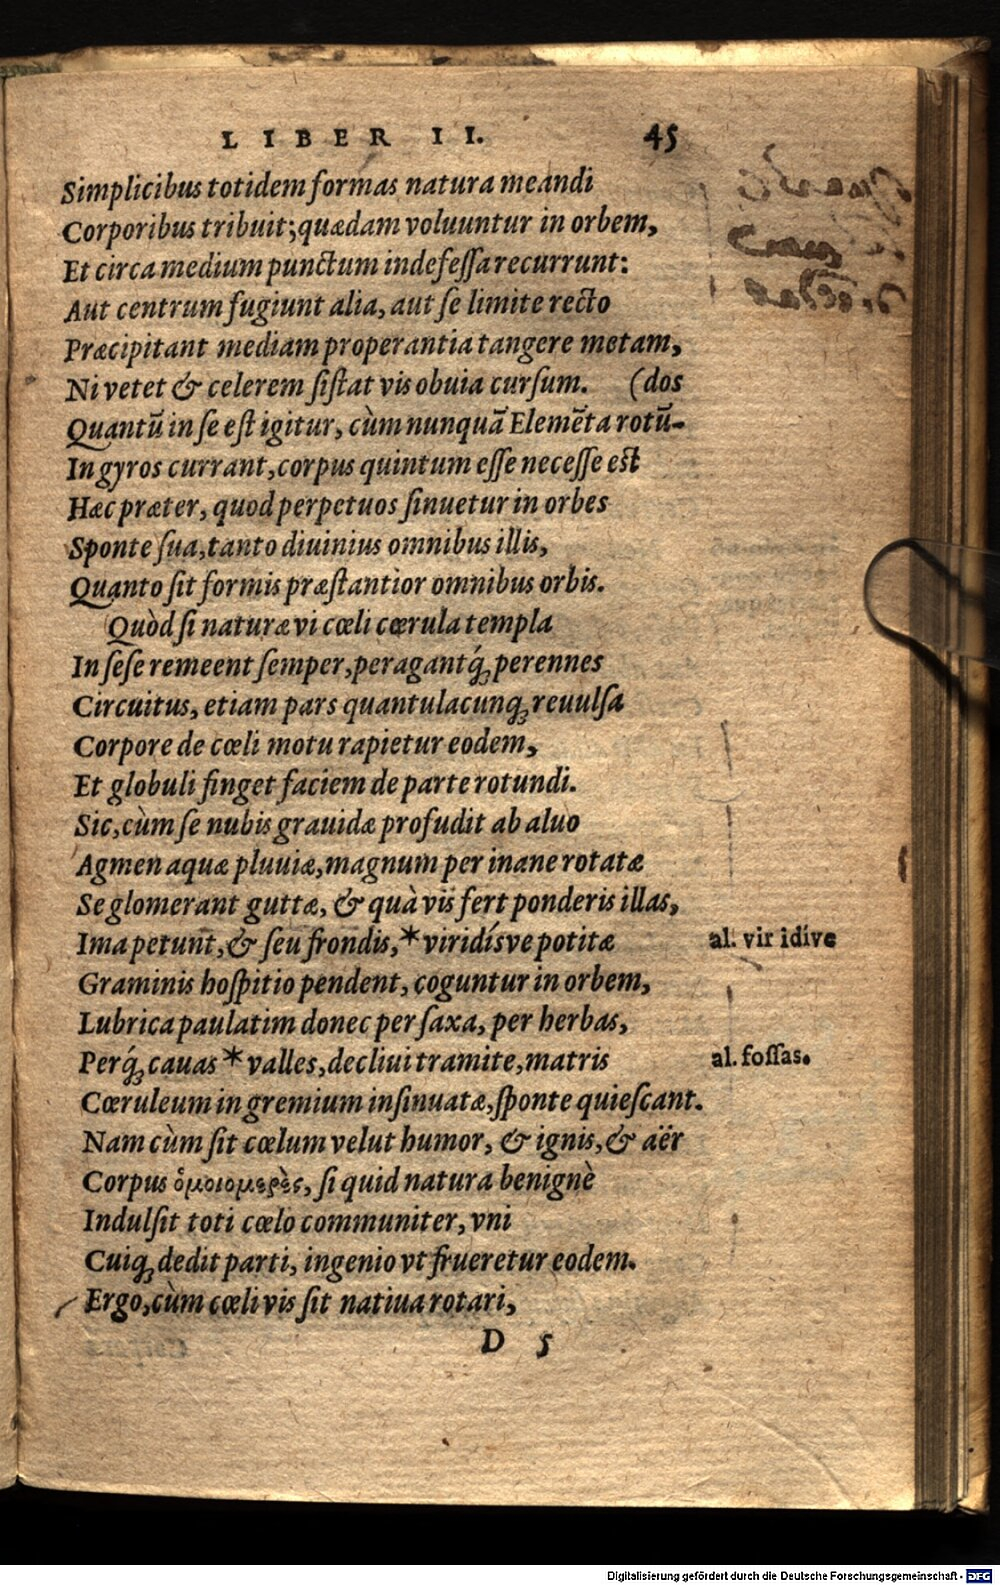 LIBER II. 45
Simplicibus totidem formas natura meandi
Corporibus tribuit; quædam voluuntur in orbem,
Et circa medium punctum indefeſſa recurrunt:
Aut centrum fugiunt alia, aut ſe limite recto
Præcipitant mediam properantia tangere metam,
Ni vetet & celerem ſiſtat vis obuia curſum. (dos
Quantū in ſe eſt igitur, cùm nunquā Elemēta rotū-
In gyros currant, corpus quintum eſſe neceſſe eſt
Hæc præter, quod perpetuos ſinuetur in orbes
Sponte ſua, tanto diuinius omnibus illis,
Quanto ſit formis præſtantior omnibus orbis.
Quòd ſi naturæ vi cœli cœrula templa
In ſeſe remeent ſemper, peragantq́; perennes
Circuitus, etiam pars quantulacunq; reuulſa
Corpore de cœli motu rapietur eodem,
Et globuli finget faciem de parte rotundi.
Sic, cùm ſe nubis grauidæ profudit ab aluo
Agmen aquæ pluuiæ, magnum per inane rotatæ
Se glomerant guttæ, & quà vis fert ponderis illas,
Ima petunt, & ſeu frondis, * viridíſve potitæ al. vir idíve
Graminis hoſpitio pendent, coguntur in orbem,
Lubrica paulatim donec per ſaxa, per herbas,
Perq́; cauas * valles, decliui tramite, matris al. foſſas.
Cœruleum in gremium inſinuatæ, ſponte quieſcant.
Nam cùm ſit cœlum velut humor, & ignis, & aër
Corpus ὁμοιομερὲς, ſi quid natura benignè
Indulſit toti cœlo communiter, vni
Cuiq; dedit parti, ingenio vt frueretur eodem.
Ergo, cùm cœli vis ſit natiua rotari,
D 5
Digitalisierung gefördert durch die Deutsche Forschungsgemeinschaft - DFG